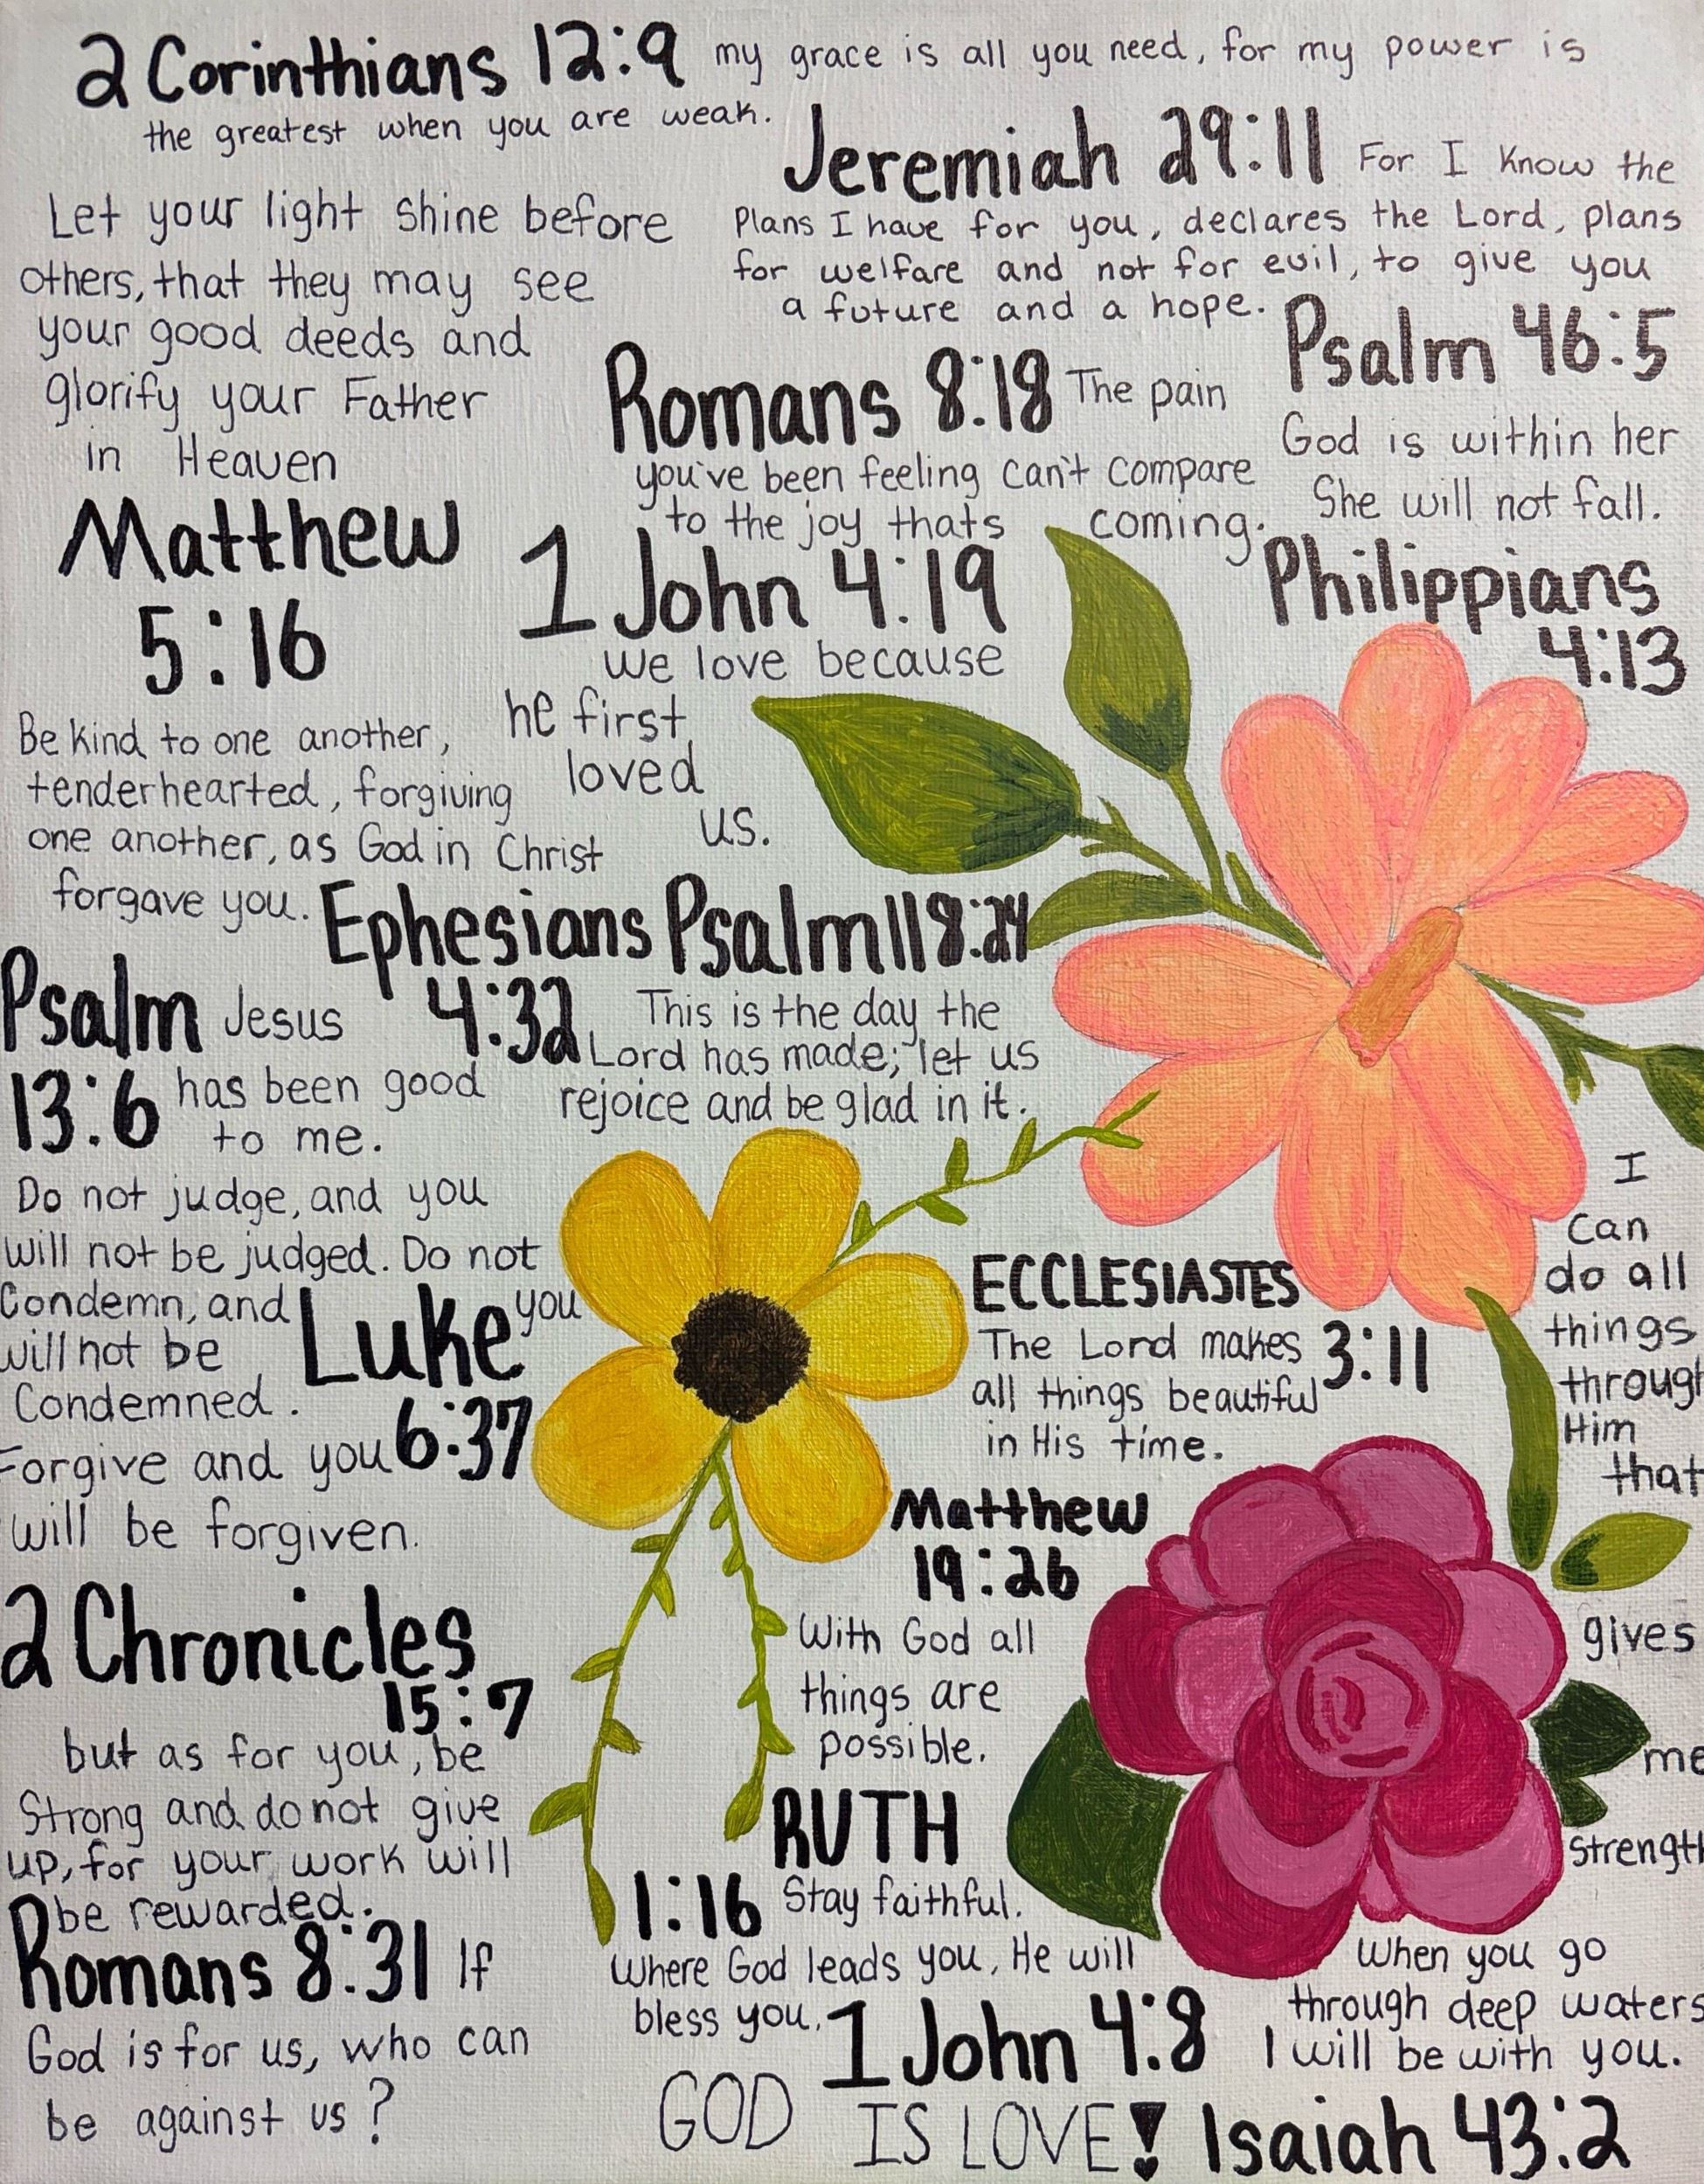 2 Corinthians 12:9 my grace is all you need, for my power is
the greatest when you are weak.
Jeremiah 29:11 For I know the
Plans I have for you, declares the Lord, plans
for welfare and not for evil, to give you
a future and a hope.
Let your light shine before
others, that they may see
your good deeds and
glorify your Father
in Heaven
Matthew
5:16
Romans 8:18 The pain
you've been feeling can't compare
to the joy thats coming.
Psalm 46:5
God is within her
She will not fall.
1 John 4:19
we love because
he first
loved
us.
Philippians
4:13
I
Can
do all
things
through
Him
that
gives
me
strength
Be kind to one another,
tenderhearted, forgiving
one another, as God in Christ
forgave you.
Ephesians
4:32
Psalm 118:24
This is the day the
Lord has made; let us
rejoice and be glad in it.
Psalm Jesus
13:6 has been good
to me.
Do not judge, and you
will not be judged. Do not
Condemn, and you
will not be
Condemned.
Forgive and you
will be forgiven.
Luke
6:37
ECCLESIASTES
3:11
The Lord makes
all things beautiful
in His time.
Matthew
19:26
With God all
things are
possible.
2 Chronicles
15:7
but as for you, be
Strong and do not give
up, for your work will
be rewarded.
RUTH
1:16 Stay faithful.
Where God leads you, He will
bless you.
Romans 8:31 If
God is for us, who can
be against us?
1 John 4:8
GOD IS LOVE!
When you go
through deep waters
I will be with you.
Isaiah 43:2